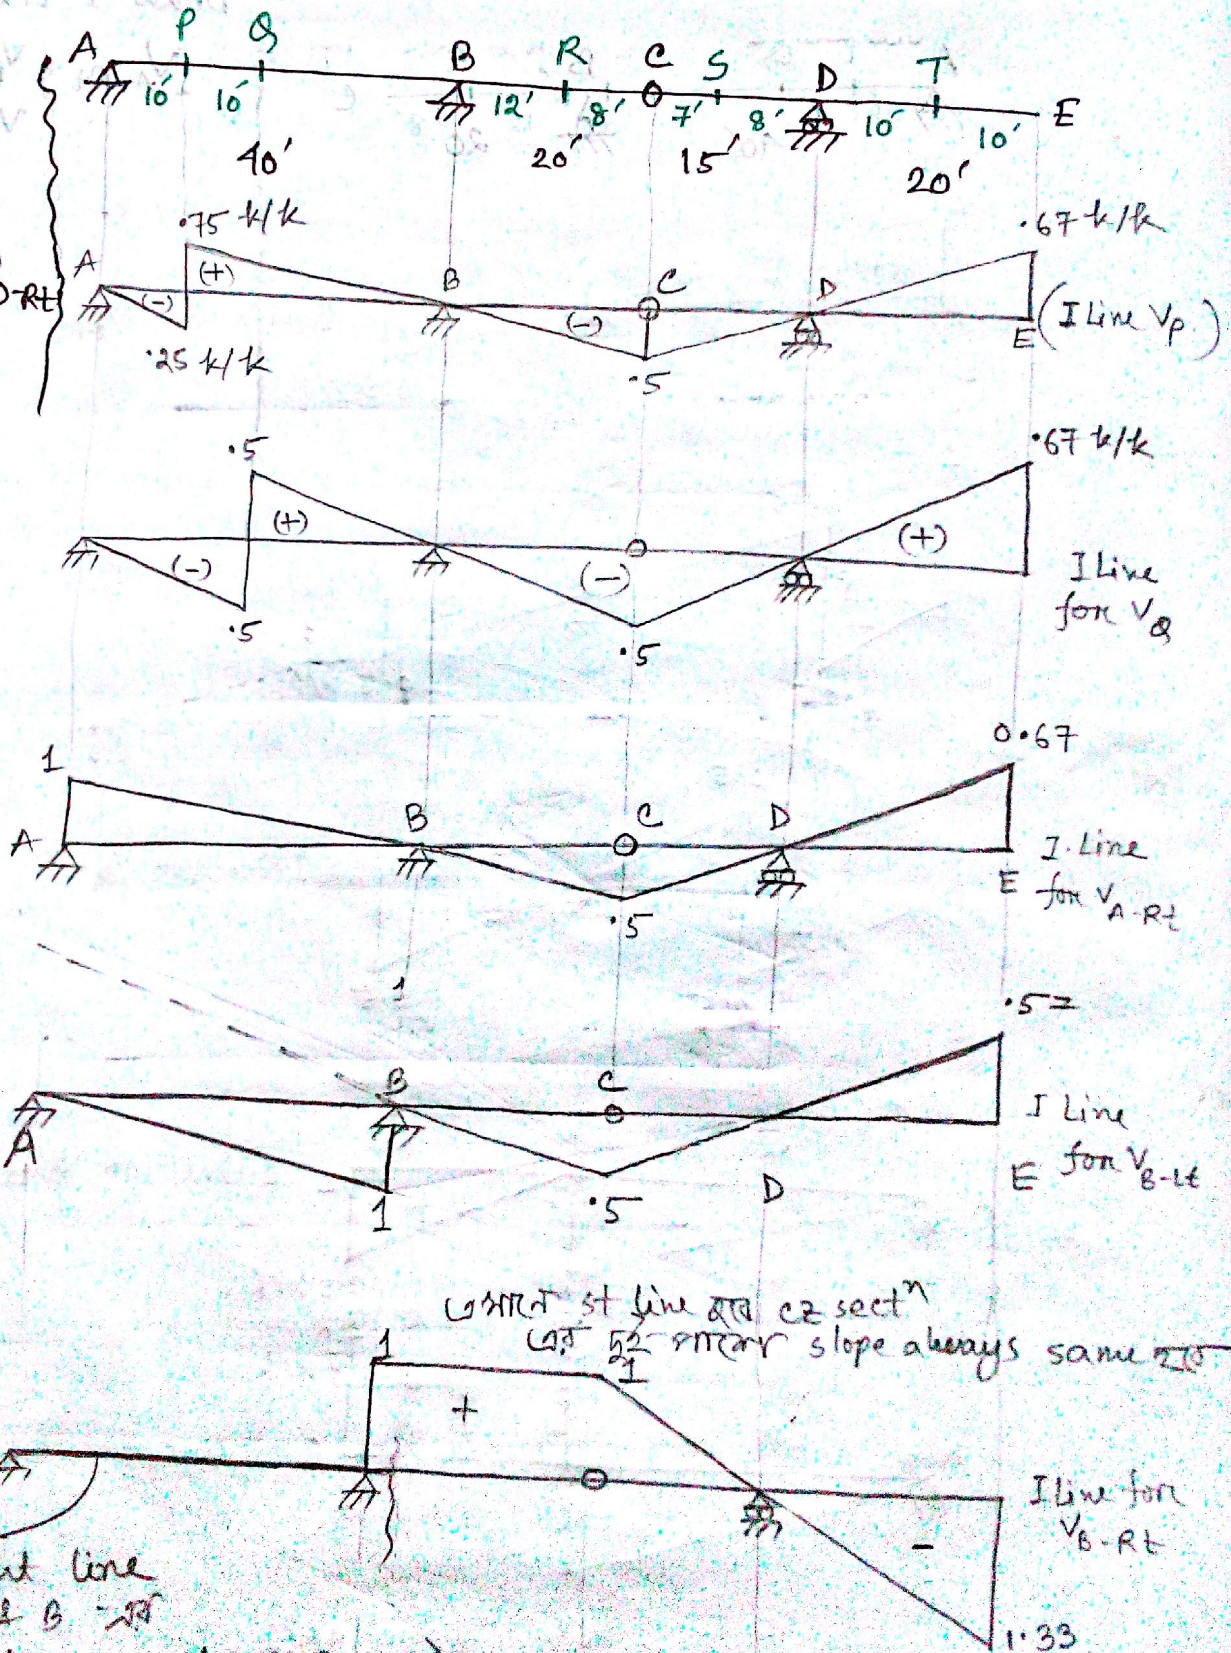 A P Q B R C S D T E
10' 10' 12' 8' 7' 8' 10' 10'
40' 20' 15' 20'
.75 k/k .67 k/k
-Rt
A (-) (+) B (-) C D E (I Line VP)
.25 k/k .5
.5 .67 k/k
(-) (+) (-) (+)
.5 .5
I Line
for VQ
1 0.67
A B C D E
.5
I. Line
for VA-Rt
1
.5=
A B C D E
1 .5
I Line
for VB-Lt
st line হবে cz sectⁿ
এর দুই পাশের slope always same হবে
1 1
+ -
I Line for
VB-Rt
1.33
line
B